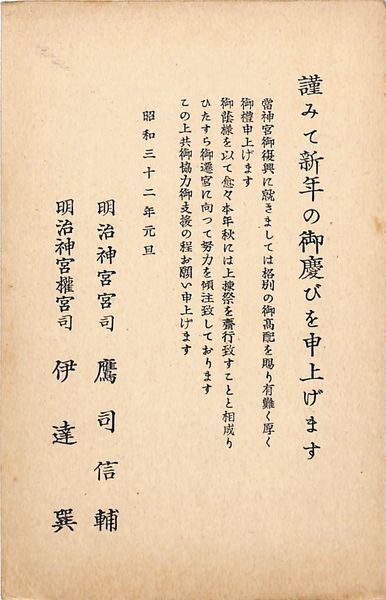 謹みて新年の御慶びを申上げます
當神宮御復興に就きましては格別の御高配を賜り有難く厚く
御禮申上げます
御蔭様を以て愈々本年秋には上棟祭を齋行致すことと相成り
ひたすら御遷宮に向つて努力を傾注致しております
この上共御協力御支援の程お願い申上げます
昭和三十二年元旦
明治神宮宮司 鷹司信輔
明治神宮權宮司 伊達巽